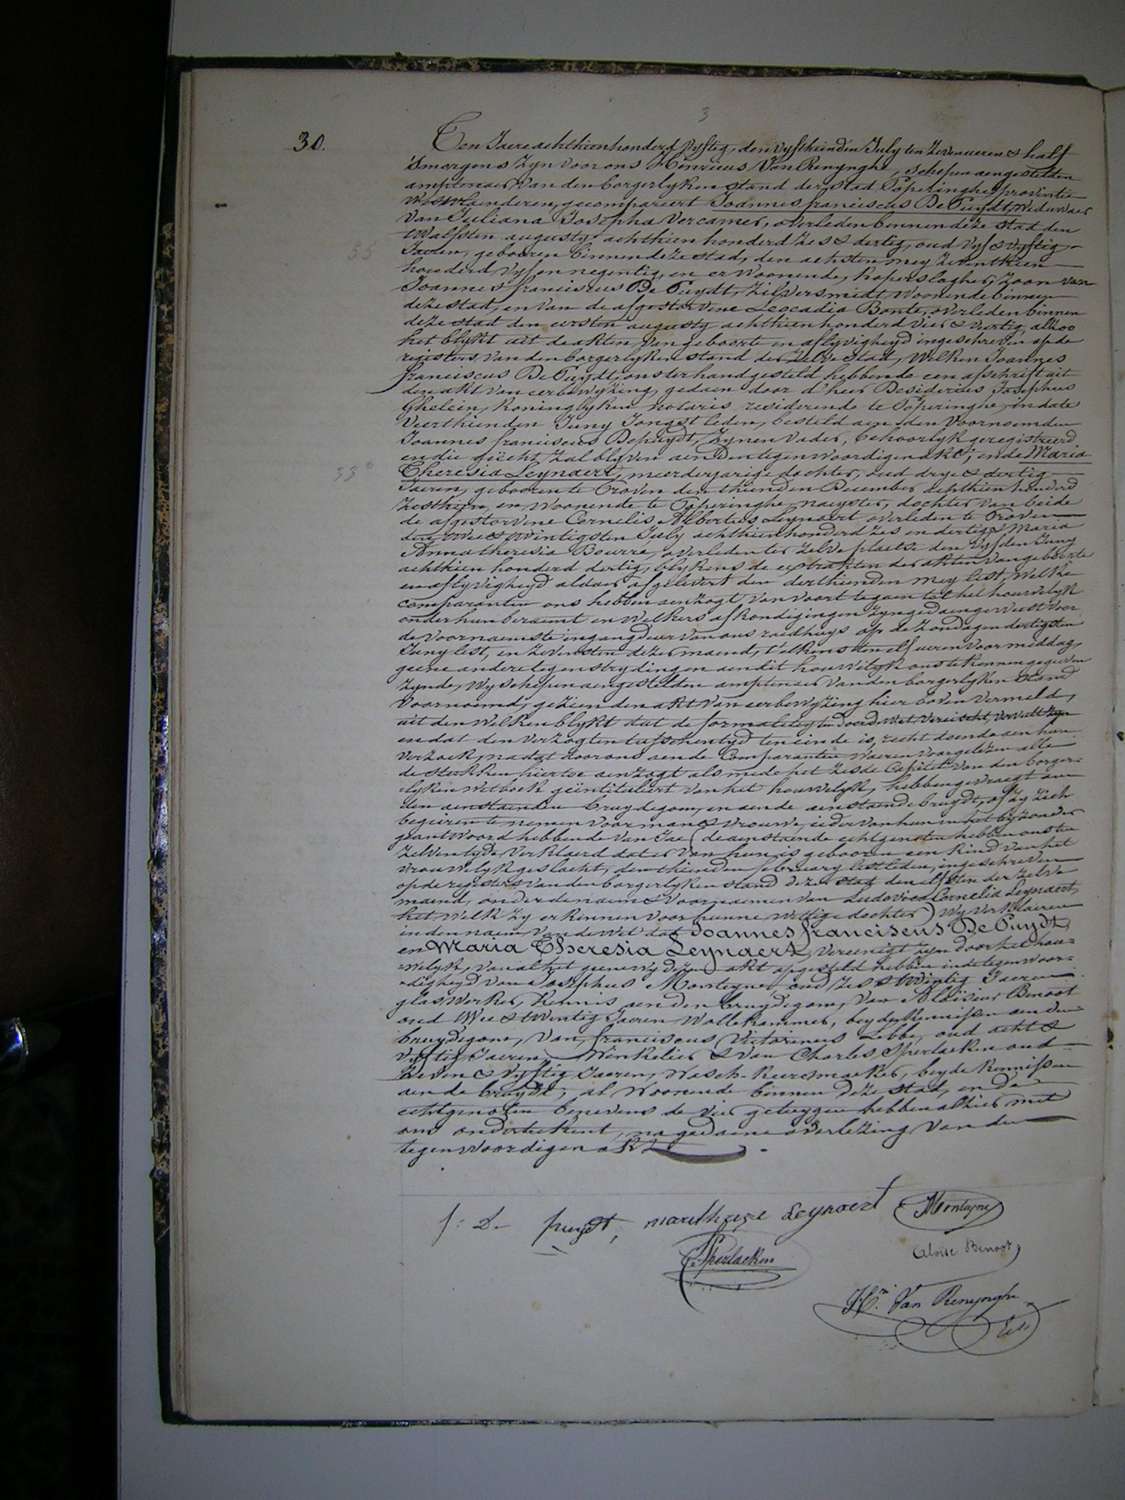 3
30.
Ten Jaere achthien honderd vyftig, den vyfthienden July ten zeven ueren & half
'smorgens zyn voor ons Henricus Van Renynghe, schepen aengestelden
amptenaer van den borgerlyken stand der stad Poperinghe, provintie
Westvlaenderen, gecompareert Joannes franciscus De Puydt, Weduwaer
van Juliana Josepha Vercamer, overleden binnen deze stad den
twalfsten augusty achthien honderd zes & dertig, oud vyf & vyftig
35
Jaeren, gebooren binnen deze stad, den achsten mey zeventhien
honderd vyf en negentig, en er woonende, koperslagher, zoon van
Joannes franciscus De Puydt, zilversmidt, woonende binnen
deze stad, en van de afgestorvene Leocadia Bonte, overleden binnen
deze stad den eersten augusty achthien honderd vier & veertig, alzoo
het blykt uit de akten van geboorte en aflyvigheyd ingeschreven op de
registers van den borgerlyken stand der zelve stad, Welken Joannes
franciscus De Puydt, ons ter hand gesteld hebbende een afschrift uit
den akt van eerbewyzing, gedaen door d'heer Desiderius Josephus
Ghelein, koninglyken notaris residerende te Poperinghe, in date
veerthienden Juny Jongst leden, besteld aen den voornoemden
Joannes franciscus Depuydt, zynen vader, behoorlyk geregistreerd
en die gehecht zal blyven aen den tegenwoordigen akt; ende Maria
33
Theresia Leynaert, meerderjarige dochter, oud drye & dertig
Jaeren, gebooren te Proven den thienden December achthien honderd
zesthien, en woonende te Poperinghe, naeyster, dochter van beide
de afgestorvene Cornelis Albertus Leynaert overleden te Proven
den twee & twintigsten July achthien honderd zes en dertig & Maria
Anna theresia Bourre, overleden ter zelve plaetse den vyfden Juny
achthien honderd dertig, blykens de extrakten der akten van geboorte
en aflyvigheyd aldaer afgelevert den derthienden mey lest, Welke
comparanten ons hebben aenzogt, van voort te gaen tot het houwelyk
onder hun beraemt en welkers afkondigingen zyn gedaen geweest voor
de voornaemste ingangdeur van ons raedhuys op de zondagen dertigsten
Juny lest, en zevensten dezer maend, t'elkens ten elf ueren voor middag,
geene andere tegenstrydingen aen dit houwelyk ons te kennen gegeven
zynde, wy schepen aengestelden amptenaer van den borgerlyken stand
voornoemd, gezien den akt van eerbewyzing hier boven vermeld,
uit den welken blykt dat de formaliteyten door de wet vereischt, vervult zyn
en dat den verzogten tusschentyd ten einde is, recht doende aen hun
verzoek, na dat door ons aen de Comparanten waeren voorgelezen alle
de stukken hiertoe aenzogt als mede het zesde Capittel van den borger-
lyken wetboek geintituleert van het houwelyk, hebben gevraegt aen
den aenstaenden bruydegom, en aen de aenstaende bruydt, of zy zich
begeeren te nemen voor man & vrouwe, ieder van hun in het byzonder
geantwoord hebbende van Jae (de aenstaende echtgenoten hebben ons ten
zelven tyde verklaerd dat er van hun is gebooren een kind van het
vrouwelyk geslacht, den thienden february lestleden, ingeschreven
op de registers van den borgerlyken stand dezer stad den elfsten der zelve
maend, onder de naem & voornaemen van Ludovica Cornelia Leynaert,
het welk zy erkennen voor hunne wettige dochter) Wy verklaeren
in den naem van de Wet dat Joannes franciscus De Puydt,
en Maria Theresia Leynaert, vereenigt zyn door het hou-
welyk, van al het geene wy dezen akt opgesteld hebben in de tegenwoor-
digheyd van Josephus Montagne, oud zes & twintig Jaeren
glaswerker, kennis aen den bruydegom, van Aloisius Benoot
oud twee & twintig Jaeren Wollekammer, beyde kennissen aen den
bruydegom, van franciscus Victorinus Lebbe, oud acht &
vyftig Jaeren, Winkelier & van Charles Sperlaeken oud
zeven & vyftig Jaeren, Wasch-keersmaeker, beyde kennissen
aen de bruydt, al woonende binnen deze stad, en de
echtgenoten benevens de vier getuygen hebben alhier met
ons onderteekent, na gedaene overlezing van den
tegenwoordigen akt.
f: De puydt, maritherese Leynaert Montagne
Sperlaeken Aloise Benoot
Hri Van Renynghe